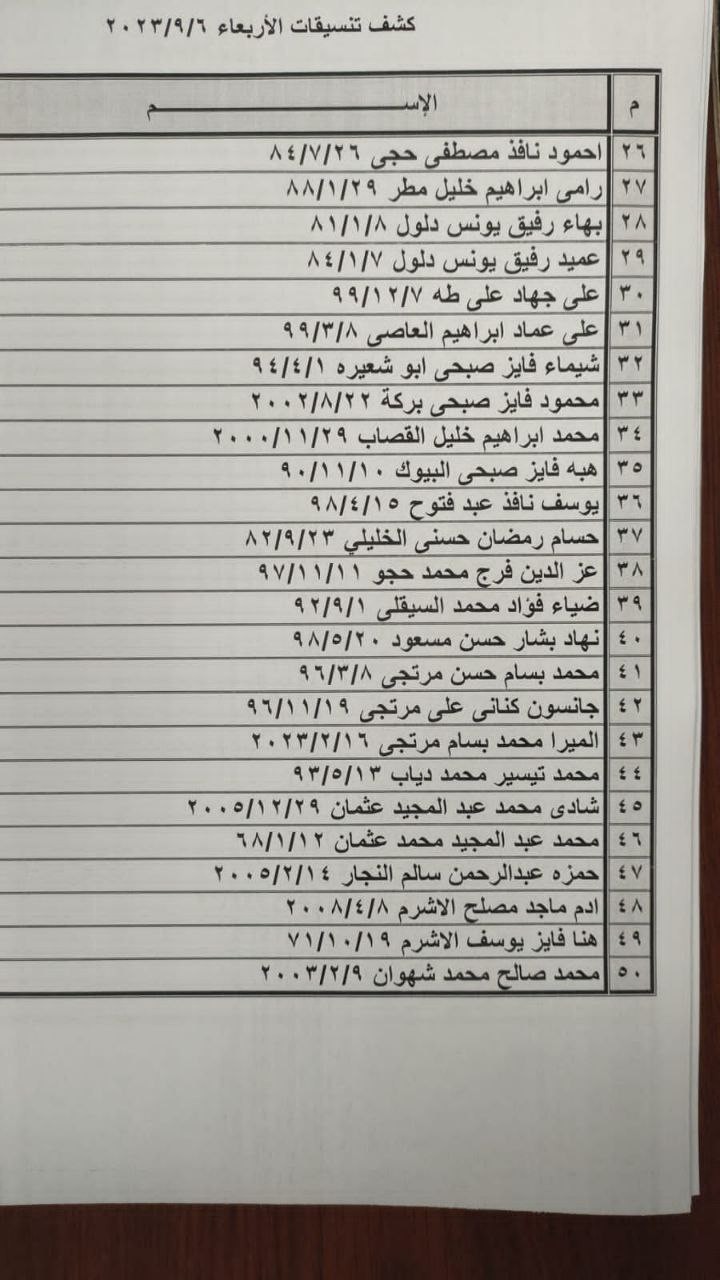 كشف تنسيقات الأربعاء ٢٠٢٣/٩/٦
م الإســـــــــــــم
٢٦ احمود نافذ مصطفى حجى ٨٤/٧/٢٦
٢٧ رامى ابراهيم خليل مطر ٨٨/١/٢٩
٢٨ بهاء رفيق يونس دلول ٨١/١/٨
٢٩ عميد رفيق يونس دلول ٨٤/١/٧
٣٠ على جهاد على طه ٩٩/١٢/٧
٣١ على عماد ابراهيم العاصى ٩٩/٣/٨
٣٢ شيماء فايز صبحى ابو شعيره ٩٤/٤/١
٣٣ محمود فايز صبحى بركة ٢٠٠٢/٨/٢٢
٣٤ محمد ابراهيم خليل القصاب ٢٠٠٠/١١/٢٩
٣٥ هبه فايز صبحى البيوك ٩٠/١١/١٠
٣٦ يوسف نافذ عبد فتوح ٩٨/٤/١٥
٣٧ حسام رمضان حسنى الخليلي ٨٢/٩/٢٣
٣٨ عز الدين فرج محمد حجو ٩٧/١١/١١
٣٩ ضياء فؤاد محمد السيقلى ٩٢/٩/١
٤٠ نهاد بشار حسن مسعود ٩٨/٥/٢٠
٤١ محمد بسام حسن مرتجى ٩٦/٣/٨
٤٢ جانسون كنانى على مرتجى ٩٦/١١/١٩
٤٣ الميرا محمد بسام مرتجى ٢٠٢٣/٢/١٦
٤٤ محمد تيسير محمد دياب ٩٣/٥/١٣
٤٥ شادى محمد عبد المجيد عثمان ٢٠٠٥/١٢/٢٩
٤٦ محمد عبد المجيد محمد عثمان ٦٨/١/١٢
٤٧ حمزه عبدالرحمن سالم النجار ٢٠٠٥/٢/١٤
٤٨ ادم ماجد مصلح الاشرم ٢٠٠٨/٤/٨
٤٩ هنا فايز يوسف الاشرم ٧١/١٠/١٩
٥٠ محمد صالح محمد شهوان ٢٠٠٣/٢/٩